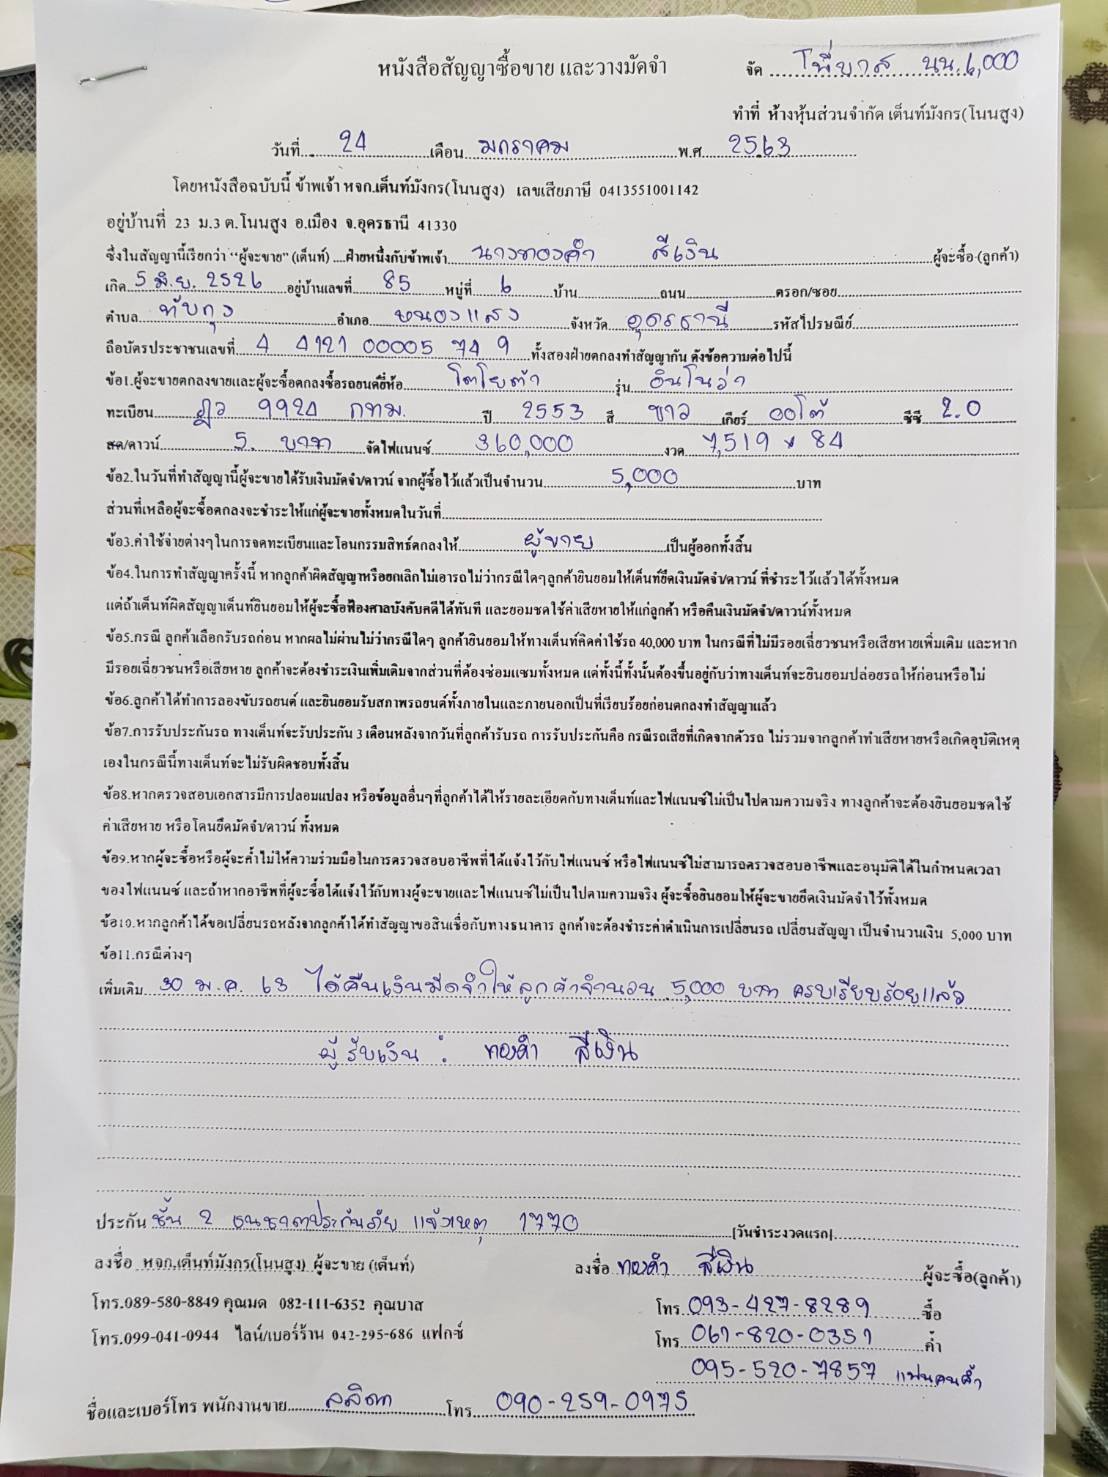 หนังสือสัญญาซื้อขาย และวางมัดจำ
จัด
ทำที่ ห้างหุ้นส่วนจำกัด เต็นท์มังกร(โนนสูง)
วันที่ 24 เดือน มกราคม พ.ศ. 2563
โดยหนังสือฉบับนี้ ข้าพเจ้า หจก.เต็นท์มังกร(โนนสูง) เลขเสียภาษี 0413551001142
อยู่บ้านที่ 23 ม.3 ต.โนนสูง อ.เมือง จ.อุดรธานี 41330
ซึ่งในสัญญานี้เรียกว่า "ผู้จะขาย" (เต็นท์) ....ฝ่ายหนึ่งกับข้าพเจ้า นางทองคำ สีเงิน ผู้จะซื้อ (ลูกค้า)
เกิด 5 มิ.ย. 2526 อยู่บ้านเลขที่ 85 หมู่ที่ 6 บ้าน ถนน ตรอก/ซอย
ตำบล ทับกุง อำเภอ หนองแสง จังหวัด อุดรธานี รหัสไปรษณีย์
ถือบัตรประชาชนเลขที่ 4 4121 00005 74 9 ทั้งสองฝ่ายตกลงทำสัญญากัน ดังข้อความต่อไปนี้
ข้อ1.ผู้จะขายตกลงขายและผู้จะซื้อตกลงซื้อรถยนต์ยี่ห้อ โตโยต้า รุ่น อินโนว่า
ทะเบียน ฎว 9924 กทม. ปี 2553 สี ขาว เกียร์ ออโต้ ซีซี 2.0
สด/ดาวน์ 5. บาท จัดไฟแนนซ์ 360,000 งวด 7,519 x 84
ข้อ2.ในวันที่ทำสัญญานี้ผู้จะขายได้รับเงินมัดจำ/ดาวน์ จากผู้ซื้อไว้แล้วเป็นจำนวน 5,000 บาท
ส่วนที่เหลือผู้จะซื้อตกลงจะชำระให้แก่ผู้จะขายทั้งหมดในวันที่
ข้อ3.ค่าใช้จ่ายต่างๆในการจดทะเบียนและโอนกรรมสิทธิ์ตกลงให้ ผู้ขาย เป็นผู้ออกทั้งสิ้น
ข้อ4.ในการทำสัญญาครั้งนี้ หากลูกค้าผิดสัญญาหรือยกเลิกไม่เอารถ ไม่ว่ากรณีใดๆลูกค้ายินยอมให้เต็นท์ยึดเงินมัดจำ/ดาวน์ ที่ชำระไว้แล้วได้ทั้งหมด
แต่ถ้าเต็นท์ผิดสัญญาเต็นท์ยินยอมให้ผู้จะซื้อฟ้องศาลบังคับคดีได้ทันที และยอมชดใช้ค่าเสียหายให้แก่ลูกค้า หรือคืนเงินมัดจำ/ดาวน์ทั้งหมด
ข้อ5.กรณี ลูกค้าเลือกรับรถก่อน หากผลไม่ผ่านไม่ว่ากรณีใดๆ ลูกค้ายินยอมให้ทางเต็นท์คิดค่าใช้รถ 40,000 บาท ในกรณีที่ไม่มีรอยเฉี่ยวชนหรือเสียหายเพิ่มเติม และหาก
มีรอยเฉี่ยวชนหรือเสียหาย ลูกค้าจะต้องชำระเงินเพิ่มเติมจากส่วนที่ต้องซ่อมแซมทั้งหมด แต่ทั้งนี้ทั้งนั้นต้องขึ้นอยู่กับว่าทางเต็นท์จะยินยอมปล่อยรถให้ก่อนหรือไม่
ข้อ6.ลูกค้าได้ทำการลองขับรถยนต์ และยินยอมรับสภาพรถยนต์ทั้งภายในและภายนอกเป็นที่เรียบร้อยก่อนตกลงทำสัญญาแล้ว
ข้อ7.การรับประกันรถ ทางเต็นท์จะรับประกัน 3 เดือนหลังจากวันที่ลูกค้ารับรถ การรับประกันคือ กรณีรถเสียที่เกิดจากตัวรถ ไม่รวมจากลูกค้าทำเสียหายหรือเกิดอุบัติเหตุ
เองในกรณีนี้ทางเต็นท์จะไม่รับผิดชอบทั้งสิ้น
ข้อ8.หากตรวจสอบเอกสารมีการปลอมแปลง หรือข้อมูลอื่นๆที่ลูกค้าได้ให้รายละเอียดกับทางเต็นท์และไฟแนนซ์ไม่เป็นไปตามความจริง ทางลูกค้าจะต้องยินยอมชดใช้
ค่าเสียหาย หรือโดนยึดมัดจำ/ดาวน์ ทั้งหมด
ข้อ9.หากผู้จะซื้อหรือผู้จะค้ำไม่ให้ความร่วมมือในการตรวจสอบอาชีพที่ได้แจ้งไว้กับไฟแนนซ์ หรือไฟแนนซ์ไม่สามารถตรวจสอบอาชีพและอนุมัติได้ในกำหนดเวลา
ของไฟแนนซ์ และถ้าหากอาชีพที่ผู้จะซื้อได้แจ้งไว้กับทางผู้จะขายและไฟแนนซ์ไม่เป็นไปตามความจริง ผู้จะซื้อยินยอมให้ผู้จะขายยึดเงินมัดจำไว้ทั้งหมด
ข้อ10.หากลูกค้าได้ขอเปลี่ยนรถหลังจากลูกค้าได้ทำสัญญาขอสินเชื่อกับทางธนาคาร ลูกค้าจะต้องชำระค่าดำเนินการเปลี่ยนรถ เปลี่ยนสัญญา เป็นจำนวนเงิน 5,000 บาท
ข้อ11.กรณีต่างๆ
เพิ่มเติม 30 ม.ค. 63 ได้คืนเงินมัดจำให้ลูกค้าจำนวน 5,000 บาท ครบเรียบร้อยแล้ว
ผู้รับเงิน : ทองคำ สีเงิน
ประกัน ชั้น 2 ธนชาตประกันภัย แจ้งเหตุ 1770 [วันชำระงวดแรก]
ลงชื่อ หจก.เต็นท์มังกร(โนนสูง) ผู้จะขาย (เต็นท์) ลงชื่อ ทองคำ สีเงิน ผู้จะซื้อ(ลูกค้า)
โทร.089-580-8849 คุณมด 082-111-6352 คุณบาส โทร 093-427-8289 ซื้อ
โทร.099-041-0944 ไลน์/เบอร์ร้าน 042-295-686 แฟกซ์ โทร 061-820-0351 ค้ำ
095-520-7857 แฟนคนค้ำ
ชื่อและเบอร์โทร พนักงานขาย ลลิตา โทร 090-259-0975